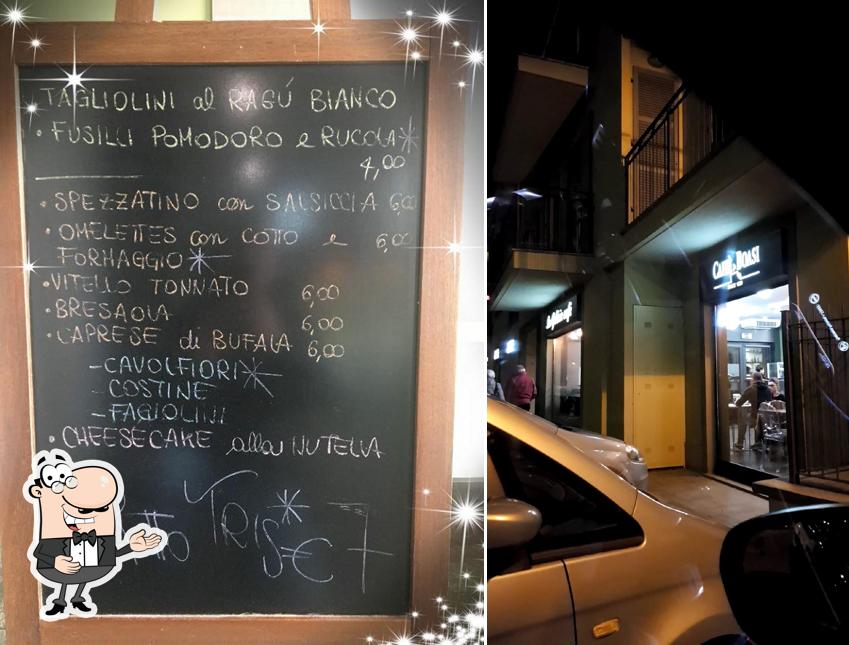 TAGLIOLINI al RAGÚ BIANCO
• FUSILLI POMODORO e RUCOLA*
4,00
• SPEZZATINO con SALSICCIA 6,00
• OMELETTES con COTTO e 6,00
FORMAGGIO*
• VITELLO TONNATO 6,00
• BRESAOLA 6,00
• CAPRESE di BUFALA 6,00
- CAVOLFIORI*
- COSTINE
- FAGIOLINI
• CHEESECAKE alla NUTELLA
TRIS* € 7
CAFFÈ BOASI